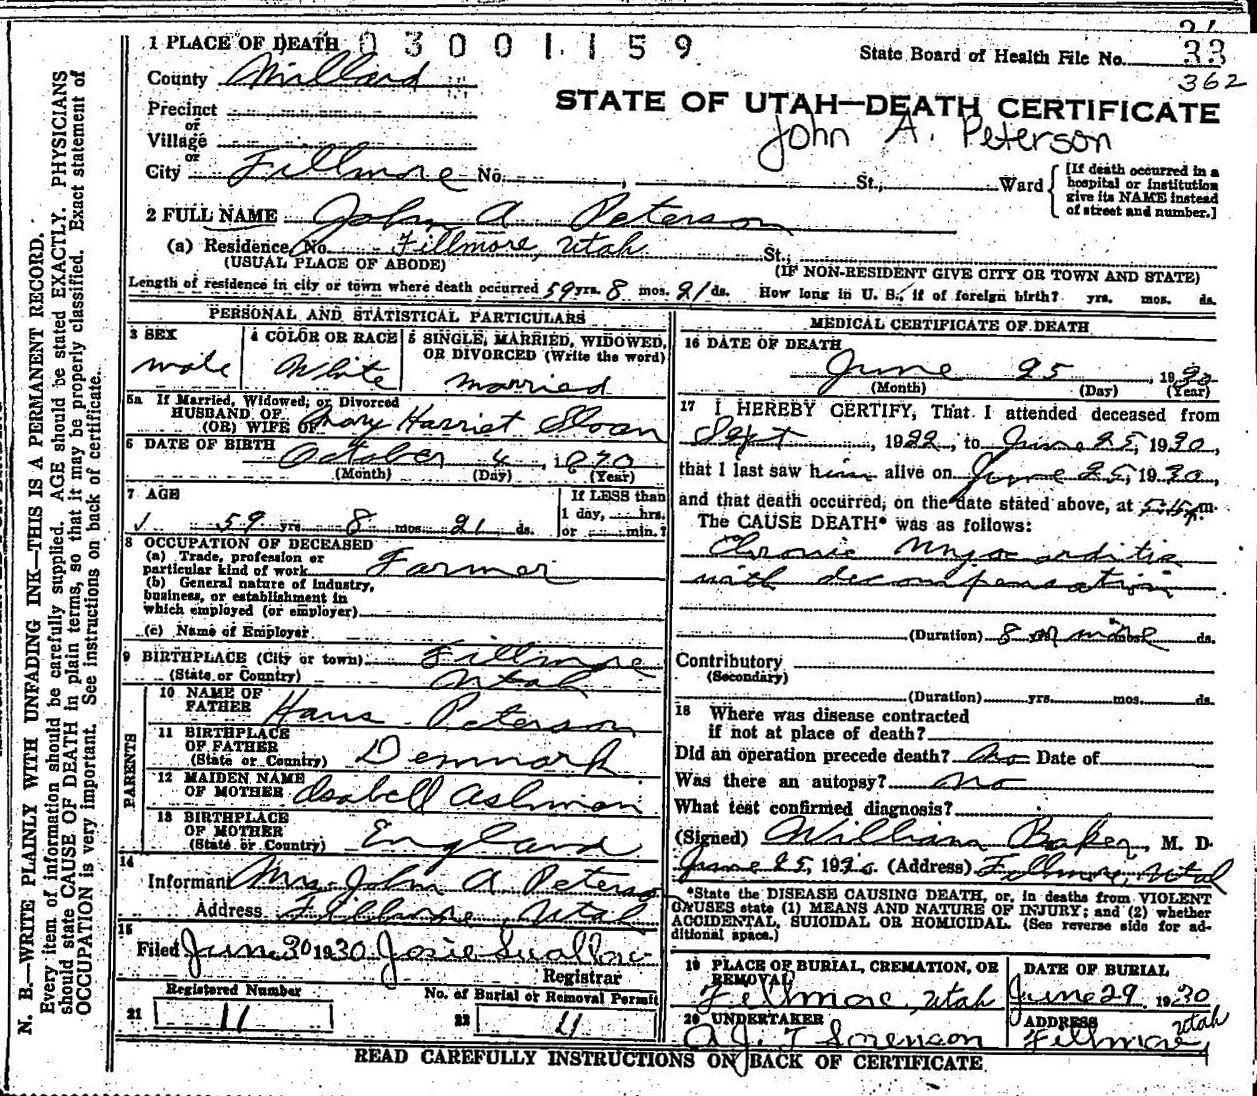 1 PLACE OF DEATH 03001159
State Board of Health File No. 33
362
County Millard
STATE OF UTAH—DEATH CERTIFICATE
Precinct
or
Village
John A. Peterson
or
City Fillmore No. St., Ward
[If death occurred in a
hospital or institution
give its NAME instead
of street and number.]
2 FULL NAME John A Peterson
(a) Residence, No. Fillmore, Utah St.,
(USUAL PLACE OF ABODE) (IF NON-RESIDENT GIVE CITY OR TOWN AND STATE)
Length of residence in city or town where death occurred 59 yrs. 8 mos. 21 ds. How long in U. S., if of foreign birth? yrs. mos. ds.
PERSONAL AND STATISTICAL PARTICULARS
3 SEX
male
4 COLOR OR RACE
White
5 SINGLE, MARRIED, WIDOWED,
OR DIVORCED (Write the word)
married
5a If Married, Widowed, or Divorced
HUSBAND OF
(OR) WIFE OF Mary Harriet Sloan
6 DATE OF BIRTH
October 4, 1870
(Month) (Day) (Year)
7 AGE
59 yrs 8 mos. 21 ds.
If LESS than
1 day, hrs.
or min.?
8 OCCUPATION OF DECEASED
(a) Trade, profession or
particular kind of work Farmer
(b) General nature of industry,
business, or establishment in
which employed (or employer)
(c) Name of Employer
9 BIRTHPLACE (City or town) Fillmore
(State or Country) Utah
PARENTS
10 NAME OF
FATHER Hans Peterson
11 BIRTHPLACE
OF FATHER
(State or Country) Denmark
12 MAIDEN NAME
OF MOTHER Isabell Ashman
13 BIRTHPLACE
OF MOTHER
(State or Country) England
14
Informant Mrs. John A Peterson
Address Fillmore, Utah
15
Filed June 30 1930 Josie Swallow
Registrar
Registered Number
21 11
No. of Burial or Removal Permit
22 11
MEDICAL CERTIFICATE OF DEATH
16 DATE OF DEATH
June 25, 1930
(Month) (Day) (Year)
17 I HEREBY CERTIFY, That I attended deceased from
Sept, 1922, to June 25, 1930,
that I last saw him alive on June 25, 1930,
and that death occurred, on the date stated above, at m.
The CAUSE DEATH* was as follows:
Chronic Myocarditis
with decompensation
(Duration) 8 or more ds.
Contributory
(Secondary)
(Duration) yrs. mos. ds.
18 Where was disease contracted
if not at place of death?
Did an operation precede death? no Date of
Was there an autopsy? no
What test confirmed diagnosis?
(Signed) William Baker, M. D.
June 25, 1930 (Address) Fillmore, Utah
*State the DISEASE CAUSING DEATH, or, in deaths from VIOLENT
CAUSES state (1) MEANS AND NATURE OF INJURY; and (2) whether
ACCIDENTAL, SUICIDAL OR HOMICIDAL. (See reverse side for ad-
ditional space.)
19 PLACE OF BURIAL, CREMATION, OR
REMOVAL
Fillmore, Utah
DATE OF BURIAL
June 29 1930
20 UNDERTAKER
A. J. T Sorenson
ADDRESS
Fillmore, Utah
READ CAREFULLY INSTRUCTIONS ON BACK OF CERTIFICATE
N. B.—WRITE PLAINLY WITH UNFADING INK—THIS IS A PERMANENT RECORD.
Every item of information should be carefully supplied. AGE should be stated EXACTLY. PHYSICIANS
should state CAUSE OF DEATH in plain terms, so that it may be properly classified. Exact statement of
OCCUPATION is very important. See instructions on back of certificate.